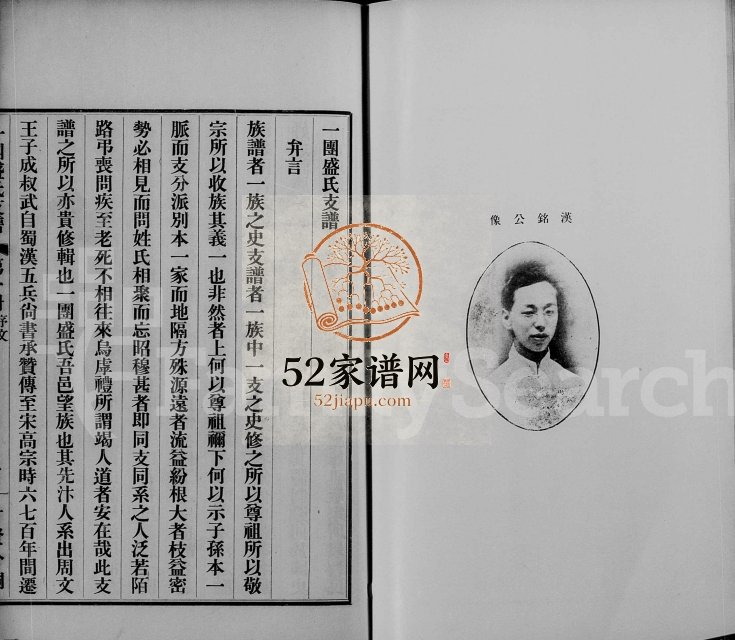 像公銘漢
一團盛氏支譜
弁言
族譜者一族之史支譜者一族中一支之史修之所以尊祖所以敬
宗所以收族其義一也非然者上何以尊祖禰下何以示子孫本一
脈而支分派別本一家而地隔方殊源遠者流益紛根大者枝益密
勢必相見而問姓氏相聚而忘昭穆甚者即同支同系之人泛若陌
路弔喪問疾至老死不相往來烏虖禮所謂竭人道者安在哉此支
譜之所以亦貴修輯也一團盛氏吾邑望族也其先汴人系出周文
王子成叔武自蜀漢五兵尚書承贊傳至宋高宗時六七百年間遷
序文
52家谱网
52jiapu.com
FamilySearch